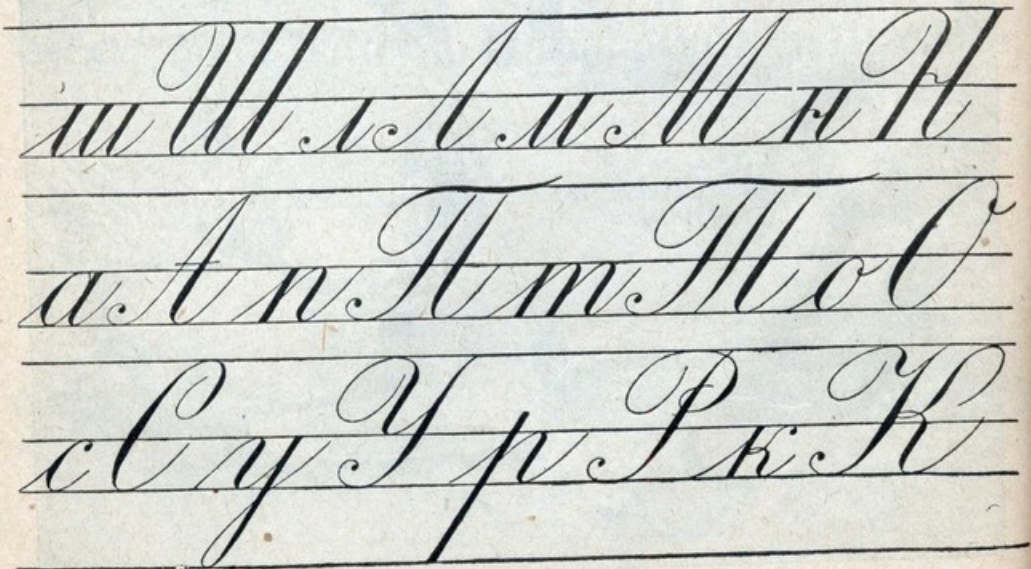 ш Ш л Л м М н Н
а А п П т Т о О
с С у У р Р к К